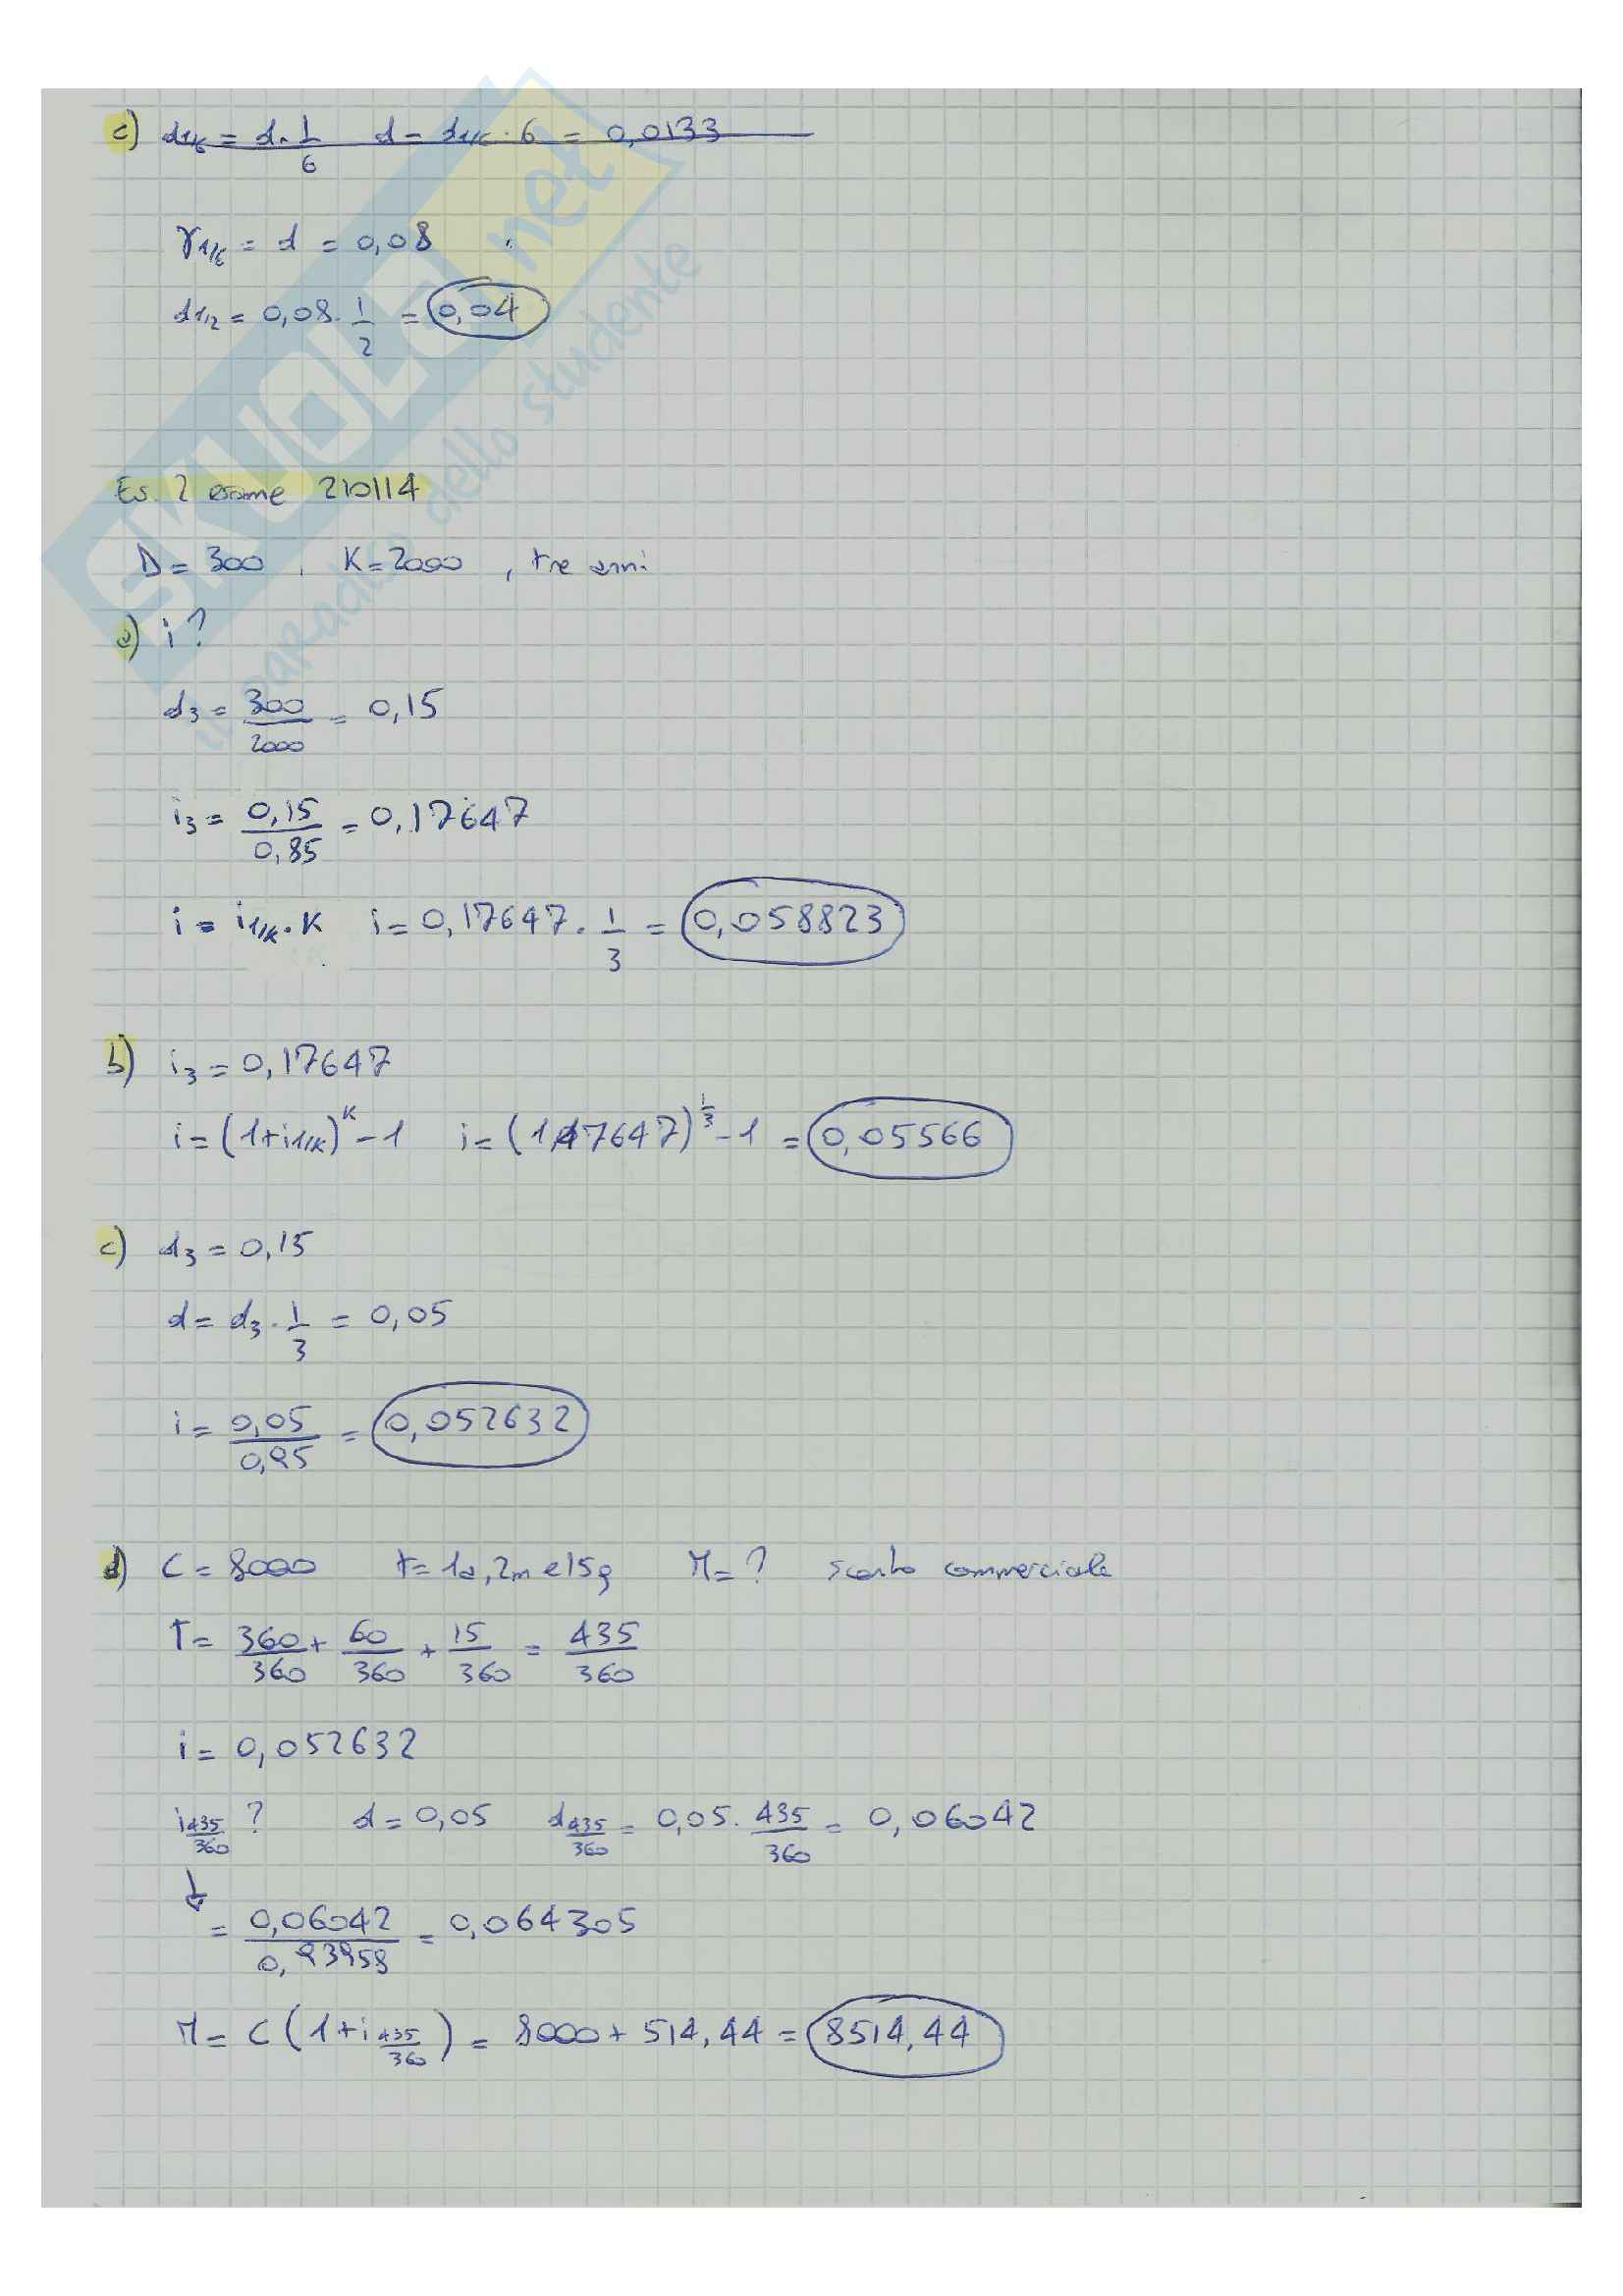 c) d1/6 = d · 1/6   d = d1/6 · 6 = 0,0133
γ1/6 = d = 0,08
d1/2 = 0,08 · 1/2 = 0,04
Es. 2 esame 210114
D = 300 , K = 2000 , tre anni
a) i?
d3 = 300/2000 = 0,15
i3 = 0,15/0,85 = 0,17647
i = i1/K · K   i = 0,17647 · 1/3 = 0,058823
b) i3 = 0,17647
i = (1+i1/K)^K - 1   i = (1,17647)^1/3 - 1 = 0,05566
c) d3 = 0,15
d = d3 · 1/3 = 0,05
i = 0,05/0,95 = 0,052632
d) C = 8000   t = 1a, 2m e 15g   M = ?   sconto commerciale
T = 360/360 + 60/360 + 15/360 = 435/360
i = 0,052632
i435/360 ?   d = 0,05   d435/360 = 0,05 · 435/360 = 0,06042
↓
= 0,06042/0,93958 = 0,064305
M = C (1+i435/360) = 8000 + 514,44 = 8514,44
SKUOLA.net
il paradiso dello studente